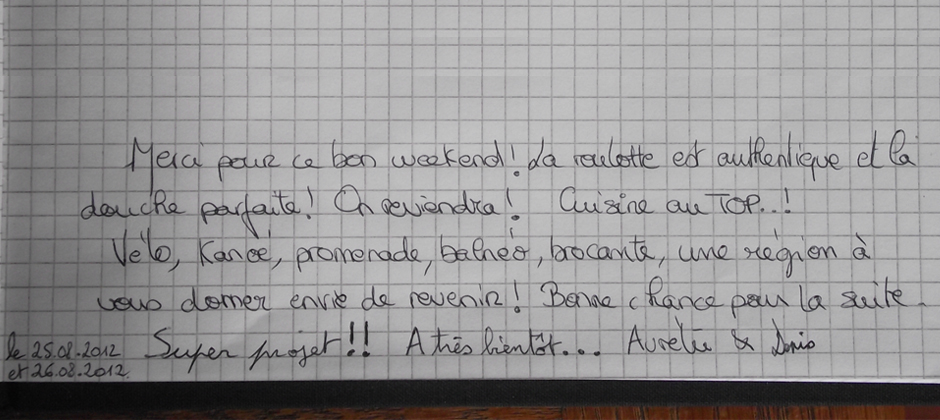 Merci pour ce bon weekend! La roulotte est authentique et la
douche parfaite! On reviendra! Cuisine au TOP..!
Vélo, Kanoé, promenade, balnéo, brocante, une région à
vous donner envie de revenir! Bonne chance pour la suite.
Super projet!! A très bientôt... Aurélie & Denis
le 25.08.2012
et 26.08.2012.